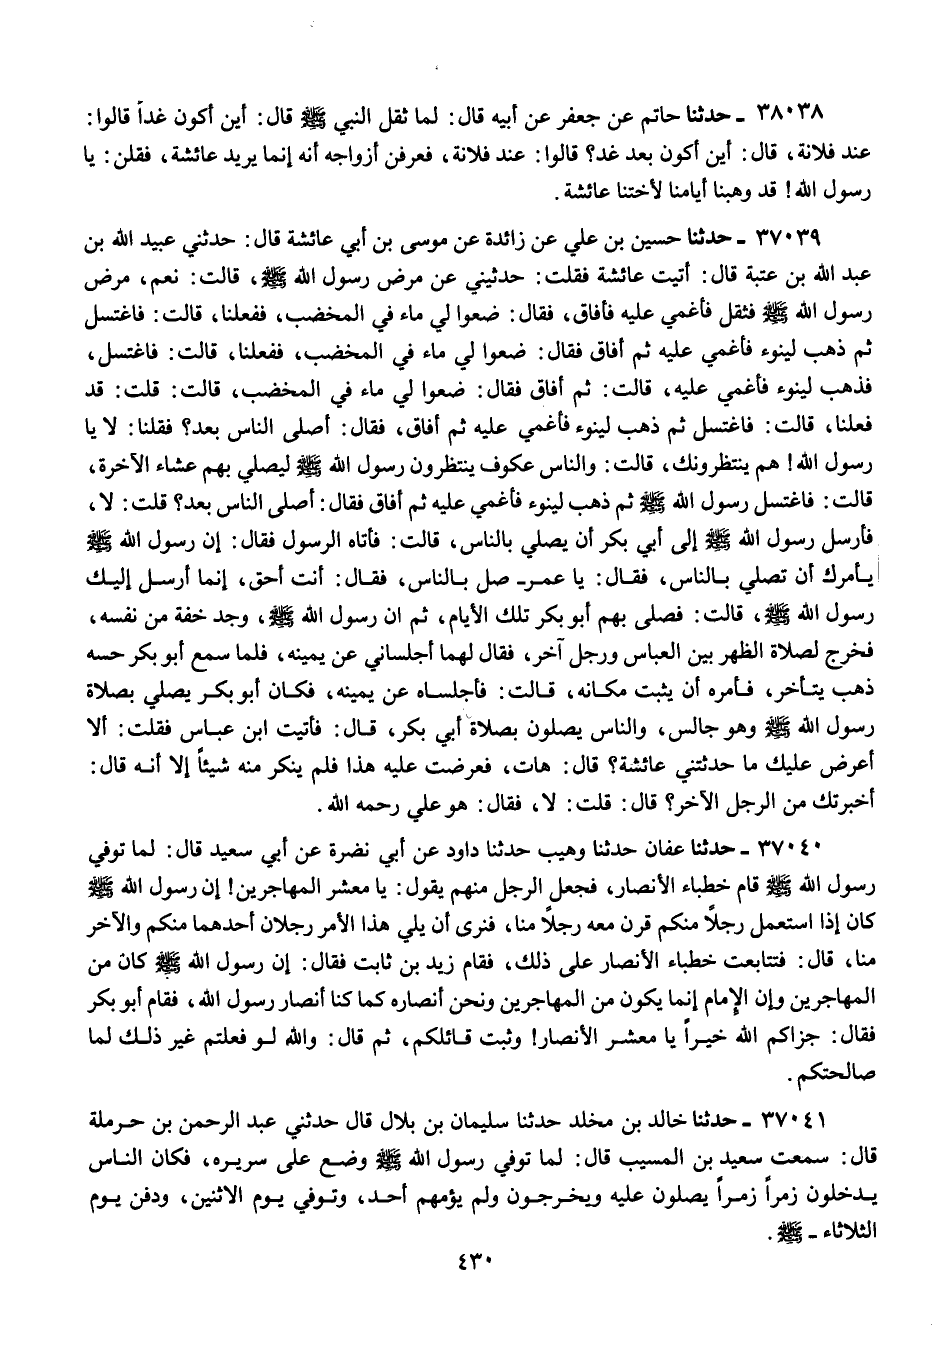 ٣٨٠٣٨ ـ حدثنا حاتم عن جعفر عن أبيه قال: لما ثقل النبي ﷺ قال: أين أكون غداً قالوا:
عند فلانة، قال: أين أكون بعد غد؟ قالوا: عند فلانة، فعرفن أزواجه أنه إنما يريد عائشة، فقلن: يا
رسول الله! قد وهبنا أيامنا لأختنا عائشة.
٣٧٠٣٩ ـ حدثنا حسين بن علي عن زائدة عن موسى بن أبي عائشة قال: حدثني عبيد الله بن
عبد الله بن عتبة قال: أتيت عائشة فقلت: حدثيني عن مرض رسول الله ﷺ، قالت: نعم، مرض
رسول الله ﷺ فثقل فأغمي عليه فأفاق، فقال: ضعوا لي ماء في المخضب، ففعلنا، قالت: فاغتسل
ثم ذهب لينوء فأغمي عليه ثم أفاق فقال: ضعوا لي ماء في المخضب، ففعلنا، قالت: فاغتسل،
فذهب لينوء فأغمي عليه، قالت: ثم أفاق فقال: ضعوا لي ماء في المخضب، قالت: قلت: قد
فعلنا، قالت: فاغتسل ثم ذهب لينوء فأغمي عليه ثم أفاق، فقال: أصلى الناس بعد؟ فقلنا: لا يا
رسول الله! هم ينتظرونك، قالت: والناس عكوف ينتظرون رسول الله ﷺ ليصلي بهم عشاء الآخرة،
قالت: فاغتسل رسول الله ﷺ ثم ذهب لينوء فأغمي عليه ثم أفاق فقال: أصلى الناس بعد؟ قلت: لا،
فأرسل رسول الله ﷺ إلى أبي بكر أن يصلي بالناس، قالت: فأتاه الرسول فقال: إن رسول الله ﷺ
يأمرك أن تصلي بالناس، فقال: يا عمرـ صل بالناس، فقال: أنت أحق، إنما أرسل إليك
رسول الله ﷺ، قالت: فصلى بهم أبو بكر تلك الأيام، ثم ان رسول الله ﷺ، وجد خفة من نفسه،
فخرج لصلاة الظهر بين العباس ورجل آخر، فقال لهما أجلساني عن يمينه، فلما سمع أبو بكر حسه
ذهب يتأخر، فأمره أن يثبت مكانه، قالت: فأجلساه عن يمينه، فكان أبو بكر يصلي بصلاة
رسول الله ﷺ وهو جالس، والناس يصلون بصلاة أبي بكر، قال: فأتيت ابن عباس فقلت: ألا
أعرض عليك ما حدثتني عائشة؟ قال: هات، فعرضت عليه هذا فلم ينكر منه شيئاً إلا أنه قال:
أخبرتك من الرجل الآخر؟ قال: قلت: لا، فقال: هو علي رحمه الله.
٣٧٠٤٠ ـ حدثنا عفان حدثنا وهيب حدثنا داود عن أبي نضرة عن أبي سعيد قال: لما توفي
رسول الله ﷺ قام خطباء الأنصار، فجعل الرجل منهم يقول: يا معشر المهاجرين! إن رسول الله ﷺ
كان إذا استعمل رجلاً منكم قرن معه رجلاً منا، فنرى أن يلي هذا الأمر رجلان أحدهما منكم والآخر
منا، قال: فتتابعت خطباء الأنصار على ذلك، فقام زيد بن ثابت فقال: إن رسول الله ﷺ كان من
المهاجرين وإن الإمام إنما يكون من المهاجرين ونحن أنصاره كما كنا أنصار رسول الله، فقام أبو بكر
فقال: جزاكم الله خيراً يا معشر الأنصار! وثبت قائلكم، ثم قال: والله لو فعلتم غير ذلك لما
صالحتكم.
٣٧٠٤١ ـ حدثنا خالد بن مخلد حدثنا سليمان بن بلال قال حدثني عبد الرحمن بن حرملة
قال: سمعت سعيد بن المسيب قال: لما توفي رسول الله ﷺ وضع على سريره، فكان الناس
يدخلون زمراً زمراً يصلون عليه ويخرجون ولم يؤمهم أحد، وتوفي يوم الاثنين، ودفن يوم
الثلاثاء ـ ﷺ.
٤٣٠